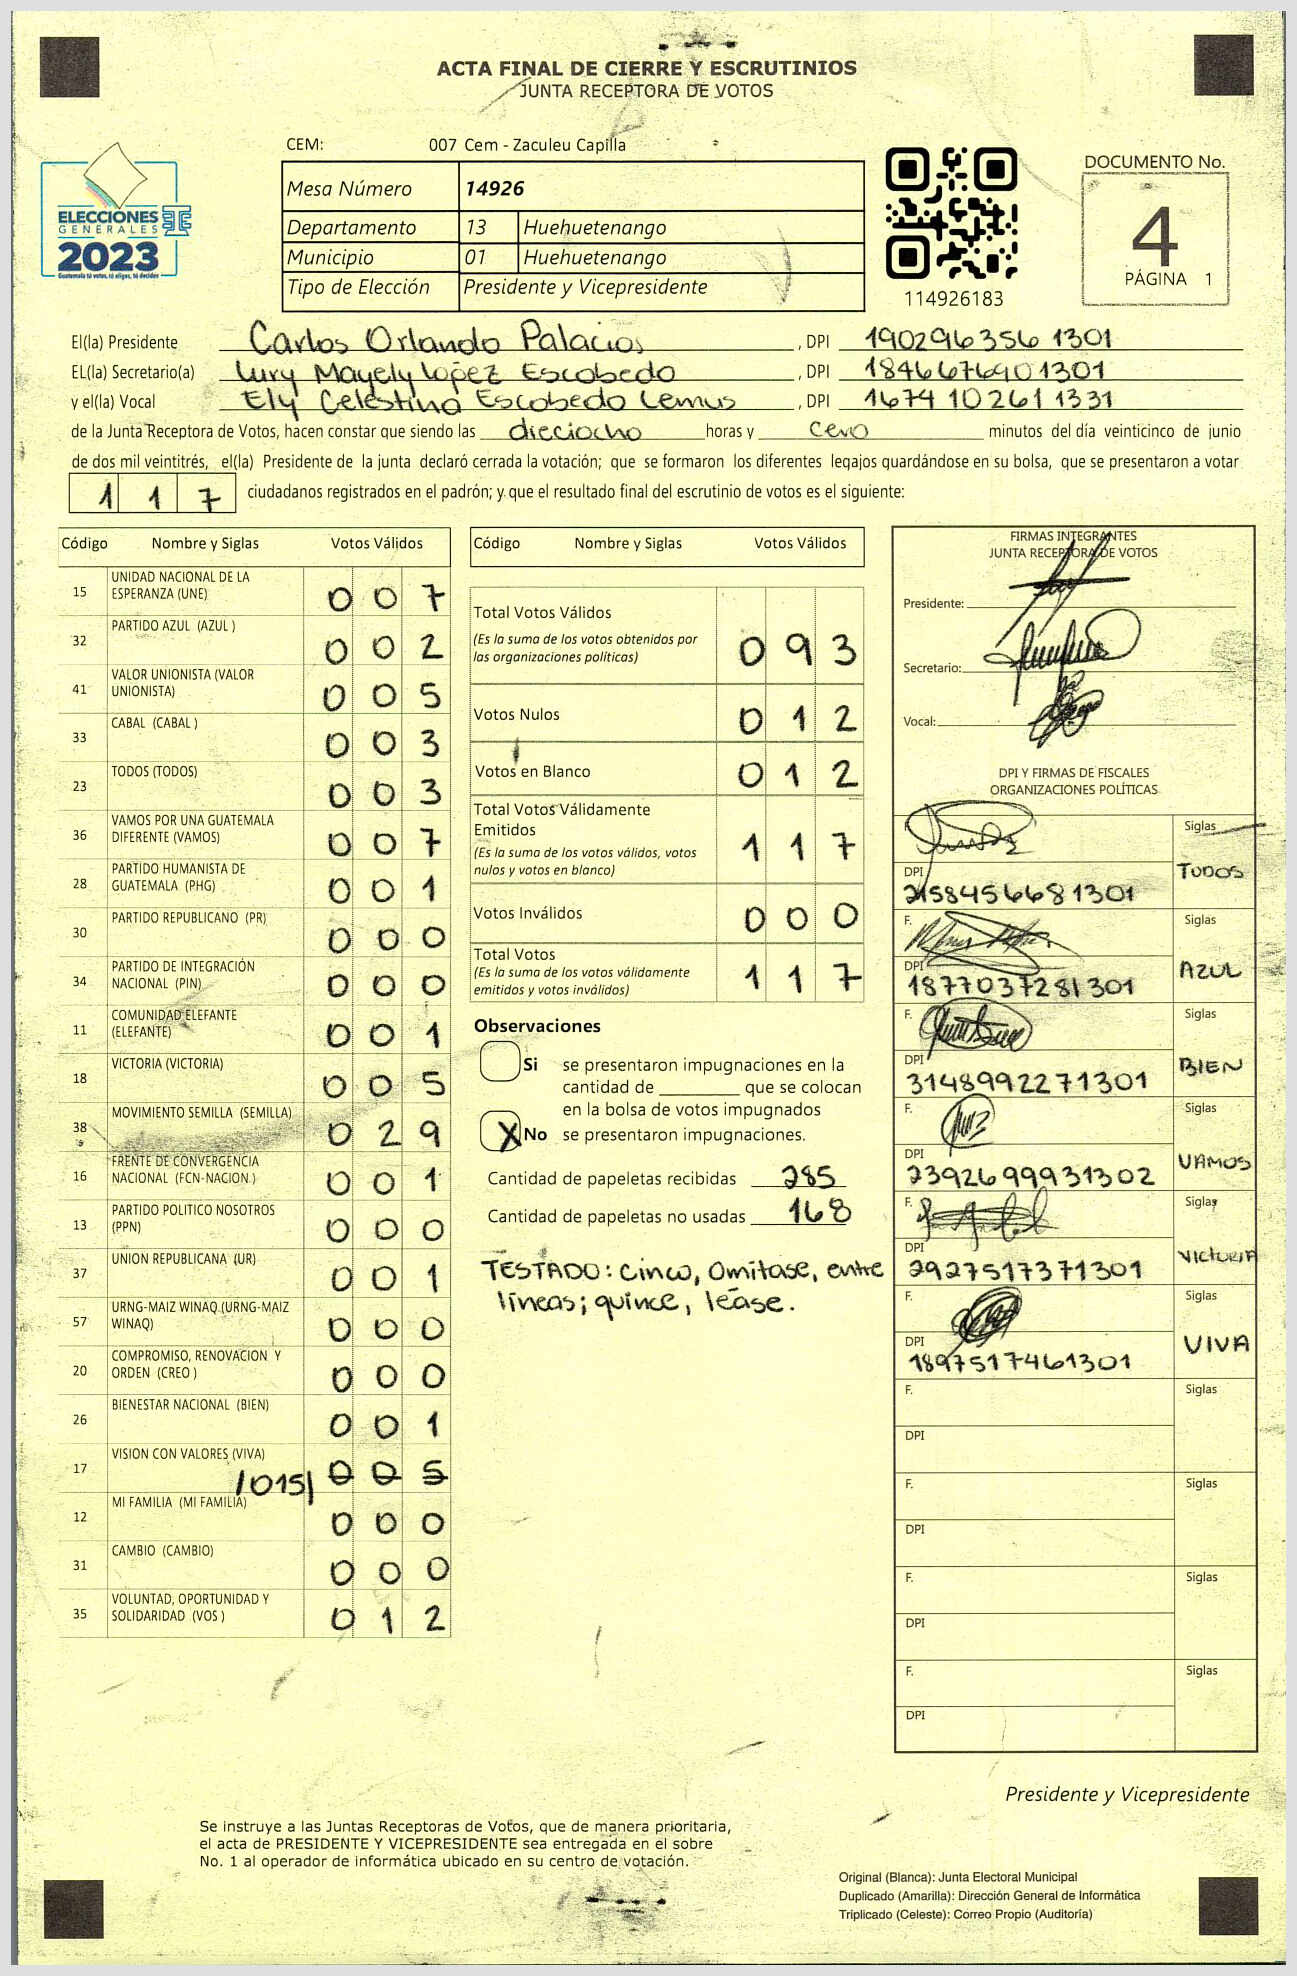 ACTA FINAL DE CIERRE Y ESCRUTINIOS
JUNTA RECEPTORA DE VOTOS
CEM: 007 Cem - Zaculeu Capilla
ELECCIONES
GENERALES
2023
Guatemala tú votas, tú eliges, tú decides
Mesa Número 14926
Departamento 13 Huehuetenango
Municipio 01 Huehuetenango
Tipo de Elección Presidente y Vicepresidente
114926183
DOCUMENTO No.
4
PÁGINA 1
El(la) Presidente Carlos Orlando Palacios, DPI 190296356 1301
EL(la) Secretario(a) Lury Mayely López Escobedo, DPI 1846676901301
y el(la) Vocal Ely Celestina Escobedo Lemus, DPI 1674 10261 1331
de la Junta Receptora de Votos, hacen constar que siendo las dieciocho horas y cero minutos del día veinticinco de junio
de dos mil veintitrés, el(la) Presidente de la junta declaró cerrada la votación; que se formaron los diferentes legajos guardándose en su bolsa, que se presentaron a votar
1 1 7 ciudadanos registrados en el padrón; y que el resultado final del escrutinio de votos es el siguiente:
Código Nombre y Siglas Votos Válidos
15 UNIDAD NACIONAL DE LA ESPERANZA (UNE) 0 0 7
32 PARTIDO AZUL (AZUL ) 0 0 2
41 VALOR UNIONISTA (VALOR UNIONISTA) 0 0 5
33 CABAL (CABAL ) 0 0 3
23 TODOS (TODOS) 0 0 3
36 VAMOS POR UNA GUATEMALA DIFERENTE (VAMOS) 0 0 7
28 PARTIDO HUMANISTA DE GUATEMALA (PHG) 0 0 1
30 PARTIDO REPUBLICANO (PR) 0 0 0
34 PARTIDO DE INTEGRACIÓN NACIONAL (PIN) 0 0 0
11 COMUNIDAD ELEFANTE (ELEFANTE) 0 0 1
18 VICTORIA (VICTORIA) 0 0 5
38 MOVIMIENTO SEMILLA (SEMILLA) 0 2 9
16 FRENTE DE CONVERGENCIA NACIONAL (FCN-NACION ) 0 0 1
13 PARTIDO POLITICO NOSOTROS (PPN) 0 0 0
37 UNION REPUBLICANA (UR) 0 0 1
57 URNG-MAIZ WINAQ (URNG-MAIZ WINAQ) 0 0 0
20 COMPROMISO, RENOVACION Y ORDEN (CREO ) 0 0 0
26 BIENESTAR NACIONAL (BIEN) 0 0 1
17 VISION CON VALORES (VIVA) /015/ 0 0 5
12 MI FAMILIA (MI FAMILIA) 0 0 0
31 CAMBIO (CAMBIO) 0 0 0
35 VOLUNTAD, OPORTUNIDAD Y SOLIDARIDAD (VOS ) 0 1 2
Código Nombre y Siglas Votos Válidos
Total Votos Válidos 0 9 3
(Es la suma de los votos obtenidos por
las organizaciones políticas)
Votos Nulos 0 1 2
Votos en Blanco 0 1 2
Total Votos Válidamente
Emitidos 1 1 7
(Es la suma de los votos válidos, votos
nulos y votos en blanco)
Votos Inválidos 0 0 0
Total Votos 1 1 7
(Es la suma de los votos válidamente
emitidos y votos inválidos)
Observaciones
Si se presentaron impugnaciones en la
cantidad de ________ que se colocan
en la bolsa de votos impugnados
X No se presentaron impugnaciones.
Cantidad de papeletas recibidas 285
Cantidad de papeletas no usadas 168
TESTADO: Cinco, Omítase, entre
líneas; quince, léase.
FIRMAS INTEGRANTES
JUNTA RECEPTORA DE VOTOS
Presidente:
Secretario:
Vocal:
DPI Y FIRMAS DE FISCALES
ORGANIZACIONES POLÍTICAS
F. Siglas
DPI 2158456681301 TODOS
F. Siglas
DPI 1877037281301 AZUL
F. Siglas
DPI 3148992271301 BIEN
F. Siglas
DPI 2392699931302 VAMOS
F. Siglas
DPI 2927517371301 VICTORIA
F. Siglas
DPI 1897517461301 VIVA
F. Siglas
DPI
F. Siglas
DPI
F. Siglas
DPI
F. Siglas
DPI
Presidente y Vicepresidente
Se instruye a las Juntas Receptoras de Votos, que de manera prioritaria,
el acta de PRESIDENTE Y VICEPRESIDENTE sea entregada en el sobre
No. 1 al operador de informática ubicado en su centro de votación.
Original (Blanca): Junta Electoral Municipal
Duplicado (Amarilla): Dirección General de Informática
Triplicado (Celeste): Correo Propio (Auditoría)